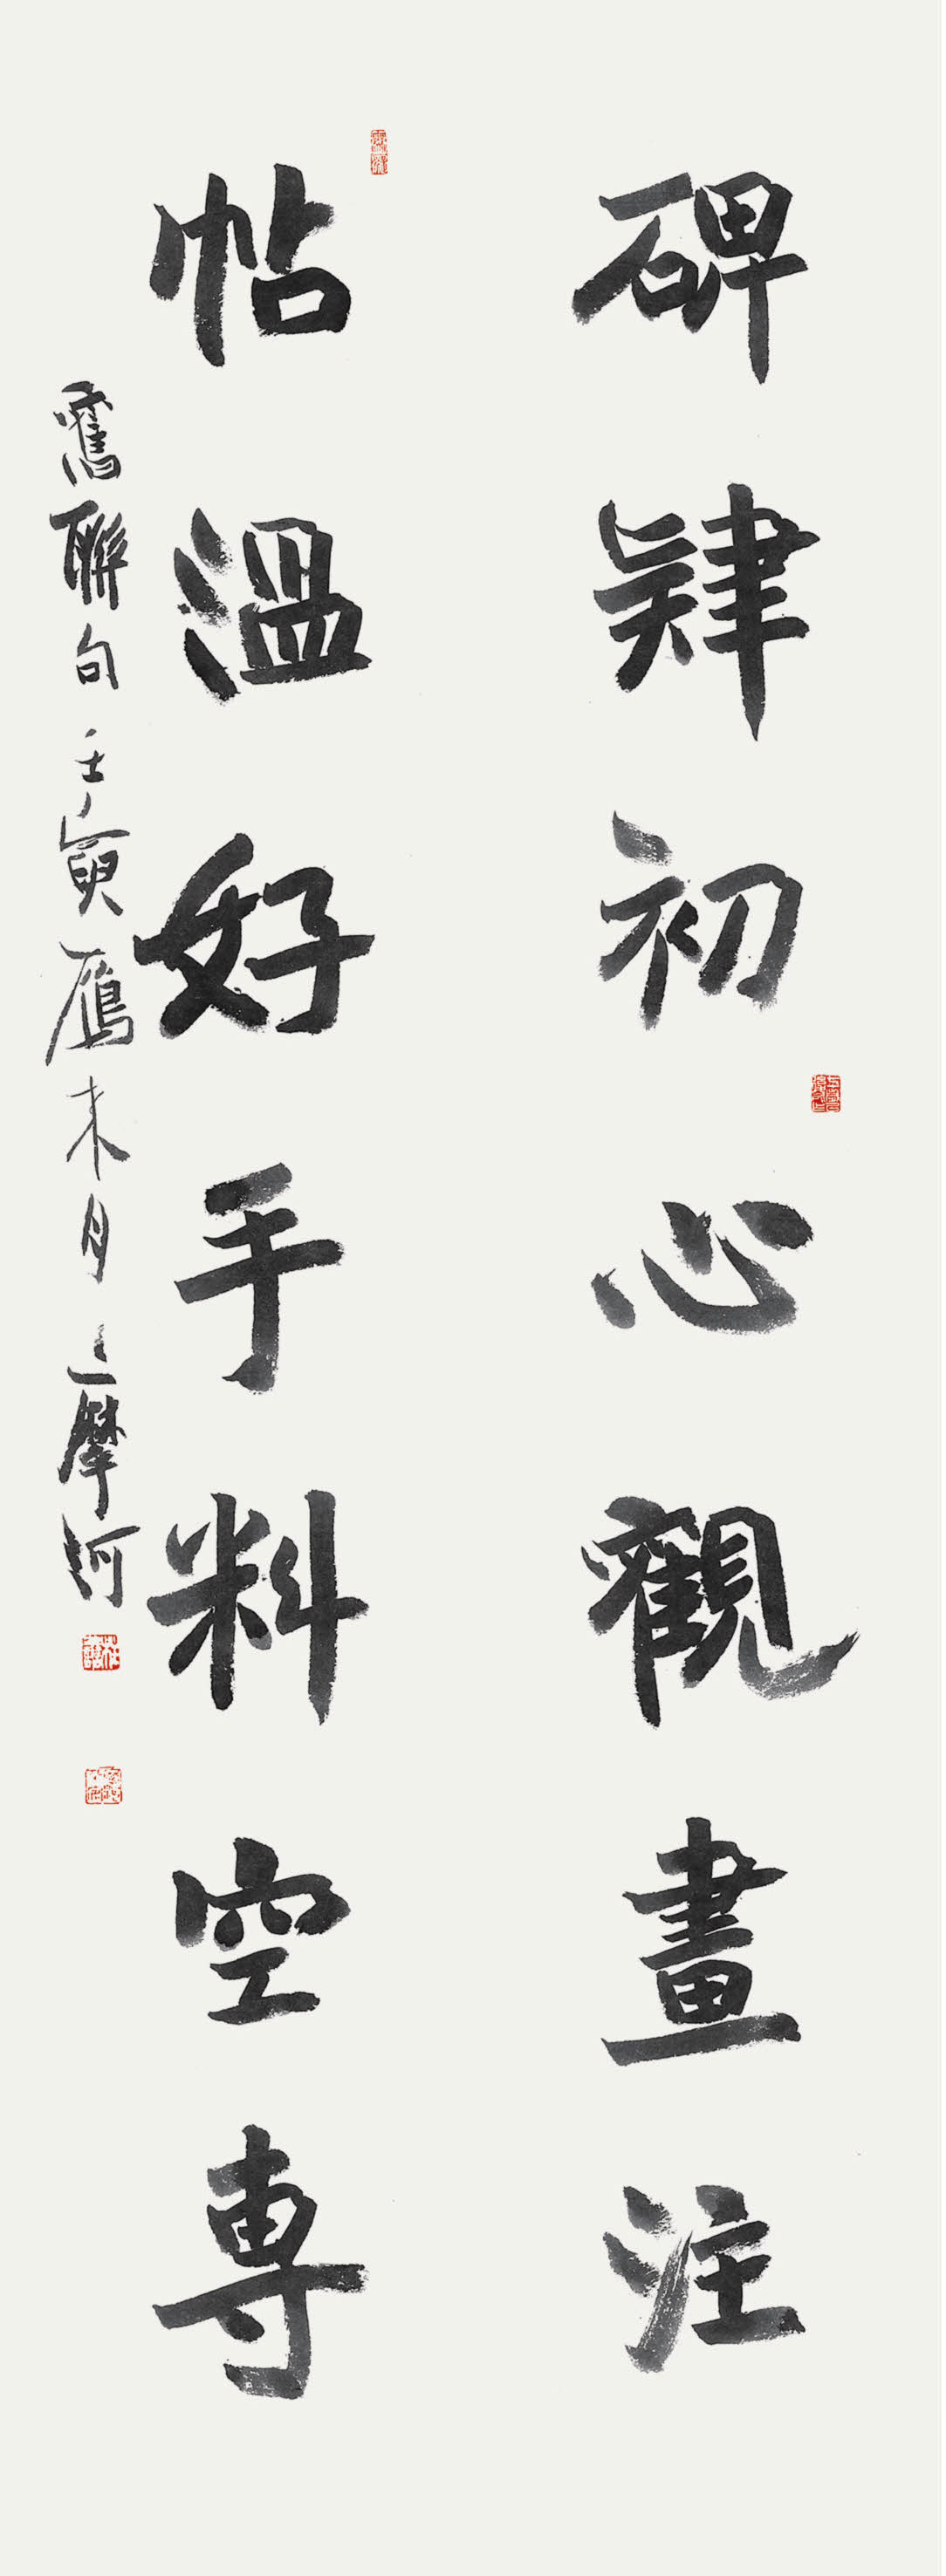 碑肄初心觀畫注
帖溫好手料空專
舊聯句壬寅鷹来月上摩河